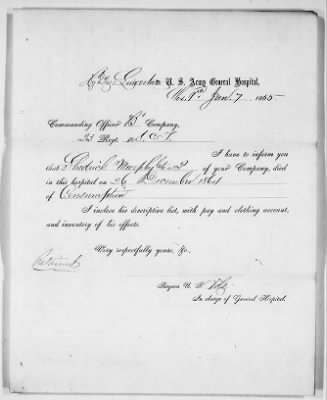 U. S. Army General Hospital,
Jany 7 1865.
Commanding Officer "B" Company,
23 Regt. U.S.C.T.
I have to inform you
that Shedrick Murphy of your Company, died
in this hospital on 26 December 1864
of Consumption
I inclose his descriptive list, with pay and clothing account,
and inventory of his effects.
Very respectfully yours, &c.,
Retained
Surgeon U. S. Vols
In charge of General Hospital.